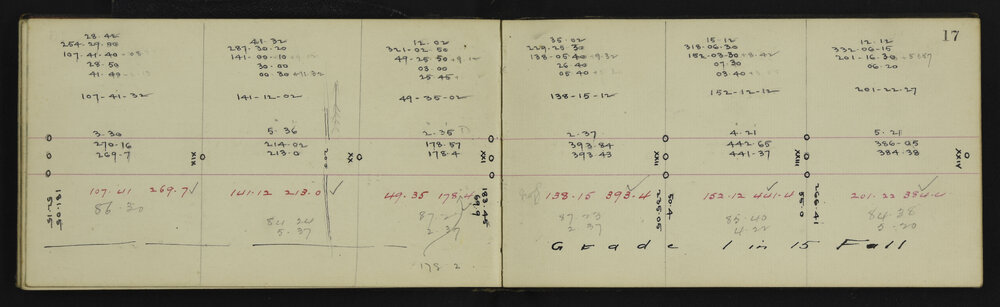 17
28.42
254.29.50
107.41.40
28.50
41.40
107-41-32
3.30
270.16
269.7
XIX
107.41 269.7
86.30
41.32
287.30.20
141.00.10
30.00
00.30 +11.32
141-12-02
5.36
214.02
213.0
200
XX
141.12 213.0
84.24
5.37
12.02
321.02.50
49.25.50
03.00
25.45
49-35-02
2.35
178.57
178.4
XXI
49.35 178.4
2.37
178.2
183.45
69.9
35.02
229.25.30
138.05.40 +9.32
26.40
05.40
138-15-12
2.37
393.84
393.43
XXII
138.15 393.4
87.23
2.37
50.4
225.05
15.12
318.06.30
152.03.30 +8.42
07.30
03.40
152-12-12
4.21
442.65
441.37
XXIII
152.12 441.4
85.40
4.22
55.0
206.41
12.12
332.06.15
201.16.30 +5.57
06.20
201-22-27
5.21
386.05
384.38
XXIV
201.22 384.4
84.38
5.20
Grade 1 in 15 Fall